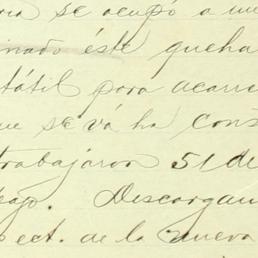 se ocupó a
inado éste queha
tátil para acarr
ue se vá ha cons
trabajaron 51 de
ego. Descargan
ect. de la nueva